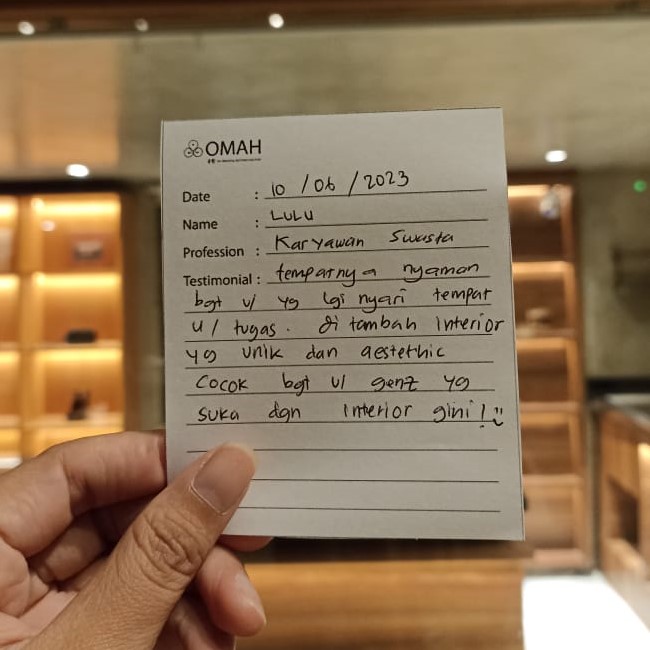 OMAH
Date : 10 / 06 / 2023
Name : LULU
Profession : Karyawan Swasta
Testimonial : tempatnya nyaman
bgt u/ yg lgi nyari tempat
u/ tugas. ditambah interior
yg unik dan aestethic
cocok bgt u/ genz yg
suka dgn interior gini!